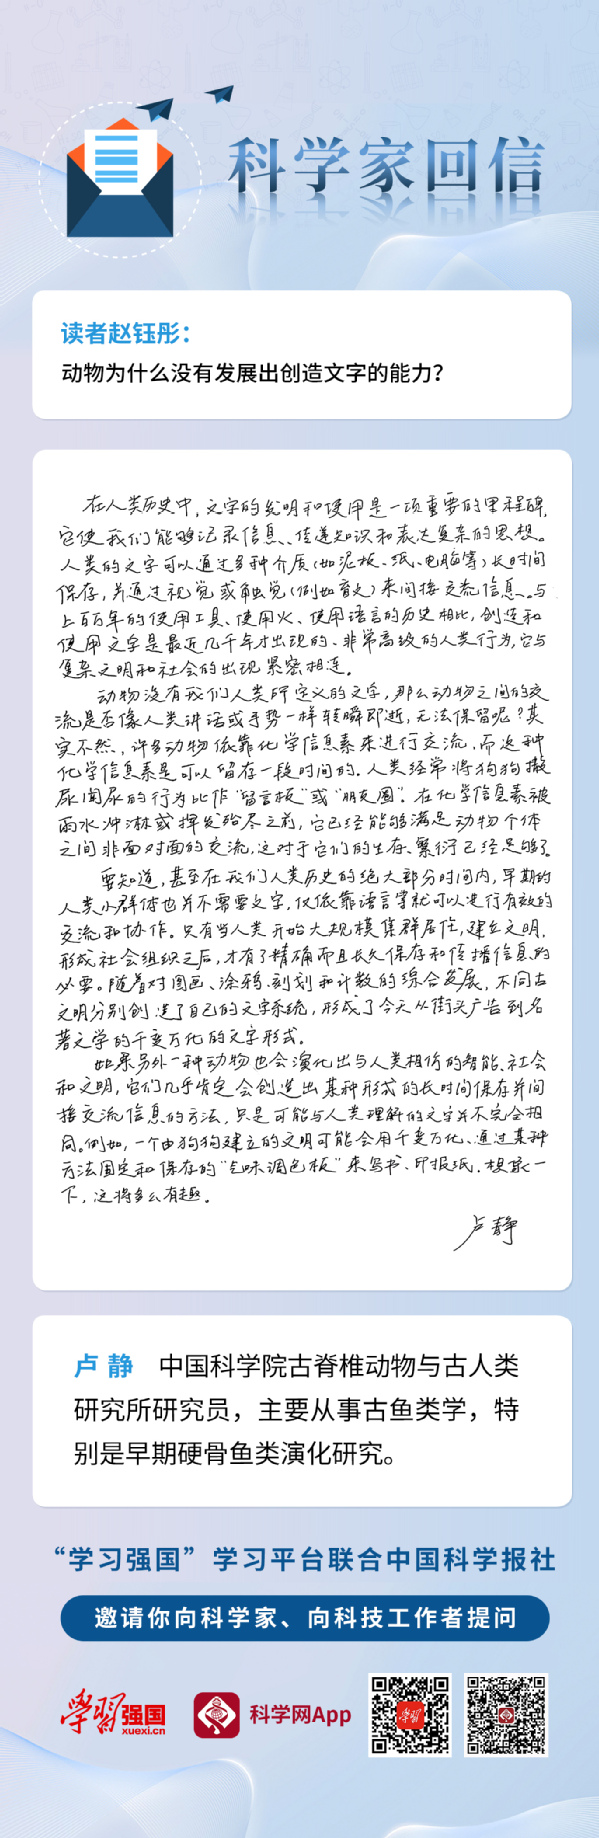 科学家回信
读者赵钰彤：
动物为什么没有发展出创造文字的能力？
在人类历史中，文字的发明和使用是一项重要的里程碑，
它使我们能够记录信息、传递知识和表达复杂的思想。
人类的文字可以通过多种介质（如泥板、纸、电脑等）长时间
保存，并通过视觉或触觉（例如盲文）来间接交流信息。与
上百万年的使用工具、使用火、使用语言的历史相比，创造和
使用文字是最近几千年才出现的、非常高级的人类行为，它与
复杂文明和社会的出现紧密相连。
动物没有我们人类所定义的文字，那么动物之间的交
流是否像人类讲话或手势一样转瞬即逝，无法保留呢？其
实不然，许多动物依靠化学信息素来进行交流，而这种
化学信息素是可以留存一段时间的。人类经常将狗狗撒
尿闻尿的行为比作“留言板”或“朋友圈”。在化学信息素被
雨水冲淋或挥发殆尽之前，它已经能够满足动物个体
之间非面对面的交流，这对于它们的生存、繁衍已经足够了。
要知道，甚至在我们人类历史的绝大部分时间内，早期的
人类小群体也并不需要文字，仅依靠语言等就可以进行有效的
交流和协作。只有当人类开始大规模集群居住，建立文明，
形成社会组织之后，才有了精确而且长久保存和传播信息的
必要。随着对图画、涂鸦、刻划和计数的综合发展，不同古
文明分别创造了自己的文字系统，形成了今天从街头广告到名
著文学的千变万化的文字形式。
如果另外一种动物也会演化出与人类相仿的智能、社会
和文明，它们几乎肯定会创造出某种形式的长时间保存并间
接交流信息的方法，只是可能与人类理解的文字并不完全相
同。例如，一个由狗狗建立的文明可能会用千变万化、通过某种
方法固定和保存的“气味调色板”来写书、印报纸。想象一
下，这将多么有趣。
卢静
卢 静 中国科学院古脊椎动物与古人类
研究所研究员，主要从事古鱼类学，特
别是早期硬骨鱼类演化研究。
“学习强国”学习平台联合中国科学报社
邀请你向科学家、向科技工作者提问
学習强国
xuexi.cn
科学网App
学習